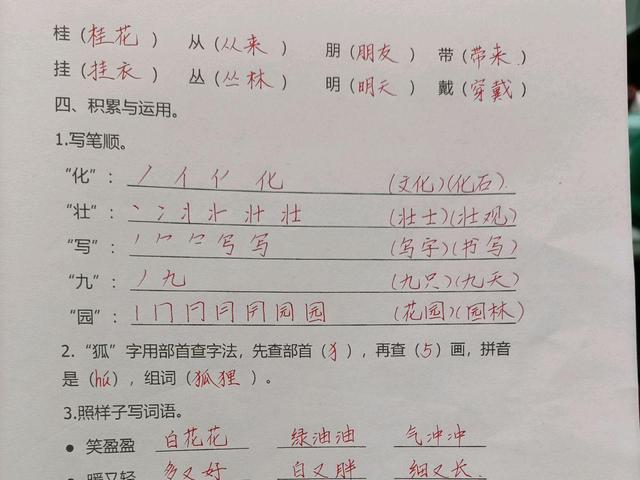 桂（桂花） 从（从来） 朋（朋友） 带（带来）
挂（挂衣） 丛（丛林） 明（明天） 戴（穿戴）
四、积累与运用。
1.写笔顺。
“化”： 丿 亻 化 (文化)(化石)
“壮”： 丶 冫 丬 壮 (壮士)(壮观)
“写”： 丶 冖 写 写 (写字)(书写)
“九”： 丿 九 (九只)(九天)
“园”： 丨 冂 园 园 (花园)(园林)
2. “狐”字用部首查字法，先查部首（犭），再查（5）画，拼音
是（hú），组词（狐狸）。
3.照样子写词语。
• 笑盈盈 白花花 绿油油 气冲冲
• 暖又轻 多又好 白又胖 细又长